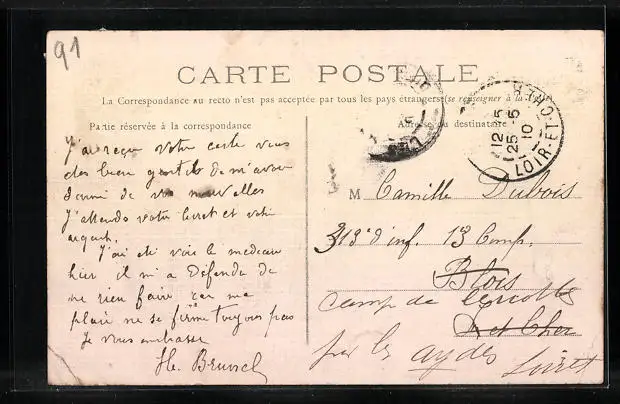 91
CARTE POSTALE
La Correspondance au recto n'est pas acceptée par tous les pays étrangers (se renseigner à la
Partie réservée à la correspondance
Adresse du destinataire
12-5
25-5
10
LOIR-ET-CHER
J'ai reçu votre carte vous
etes bien gentil de m'avoir
donné de vos nouvelles
J'attends votre livret et votre
argent.
J'ai été voir le medecin
hier il m'a défendu de
ne rien faire car ma
plaie ne se ferme toujours pas
Je vous embrasse
M Camille Dubois
313e d'inf. 13 Comp.
Blois
camp de cercottes
Loir et Cher
par les aydes
Loiret